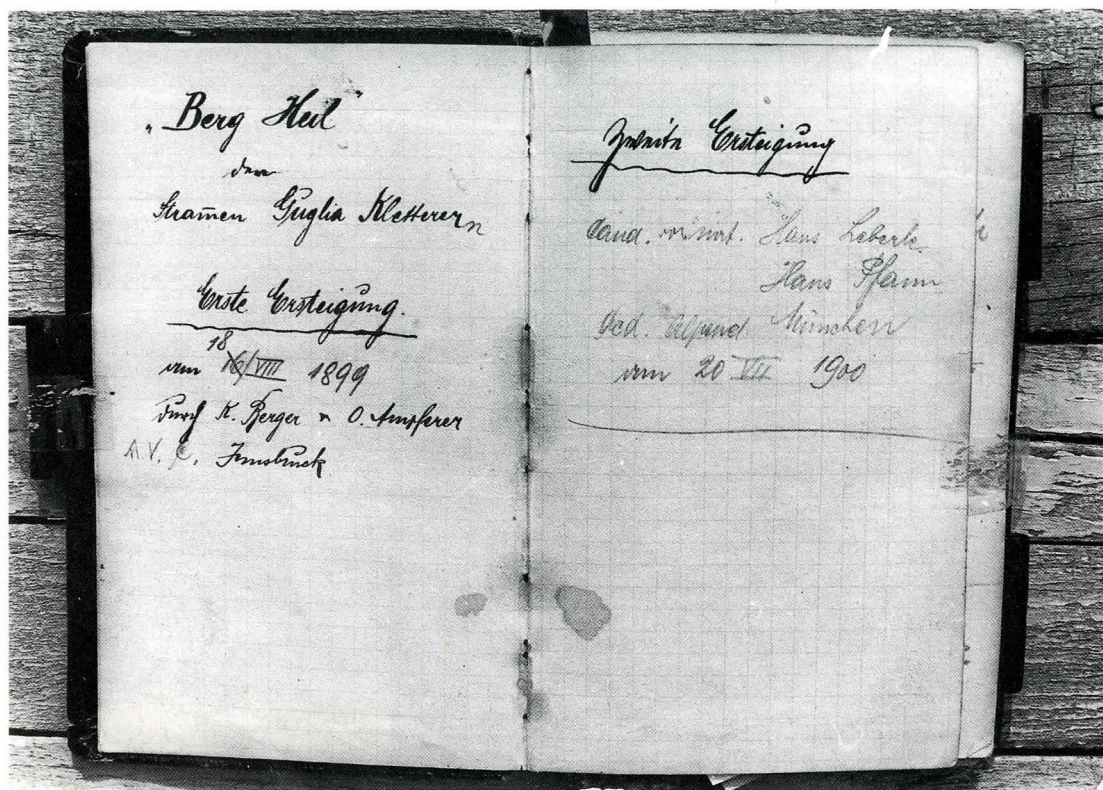 „Berg Heil"
den
Stram̄en Guglia Kletterern
Erste Ersteigung.
18
am 16/VIII 1899
durch K. Berger u O. Ampferer
A. V. Innsbruck
Zweite Ersteigung
Cand. Hans Leberle
Hans Pfann
Acd. Alpenv. München
am 20 VII 1900